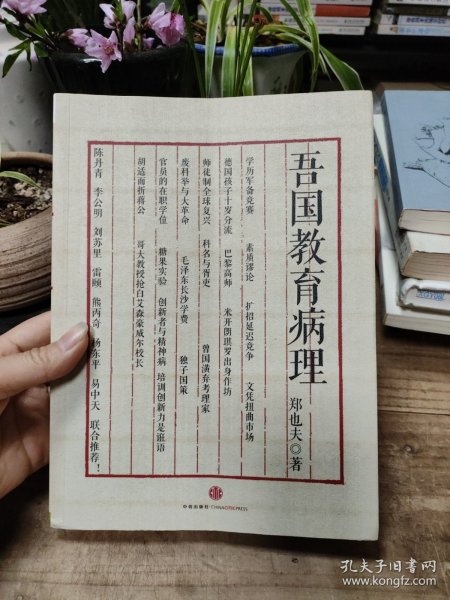 吾国教育病理
郑也夫◎著
学历军备竞赛 素质谬论 扩招延迟竞争 文凭扭曲市场
德国孩子十岁分流 巴黎高师 米开朗琪罗出身作坊
师徒制全球复兴 科名与胥吏 曾国潢弃考理家
废科举与大革命 毛泽东长沙学费 独子国策
官员的在职学位 糖果实验 创新者与精神病 培训创新力是诳语
胡适面折蒋公 哥大教授抢白艾森豪威尔校长
陈丹青 李公明 刘苏里 雷颐 熊丙奇 杨东平 易中天 联合推荐！
中信出版社·CHINACITICPRESS
孔夫子旧书网
www.kongfz.com